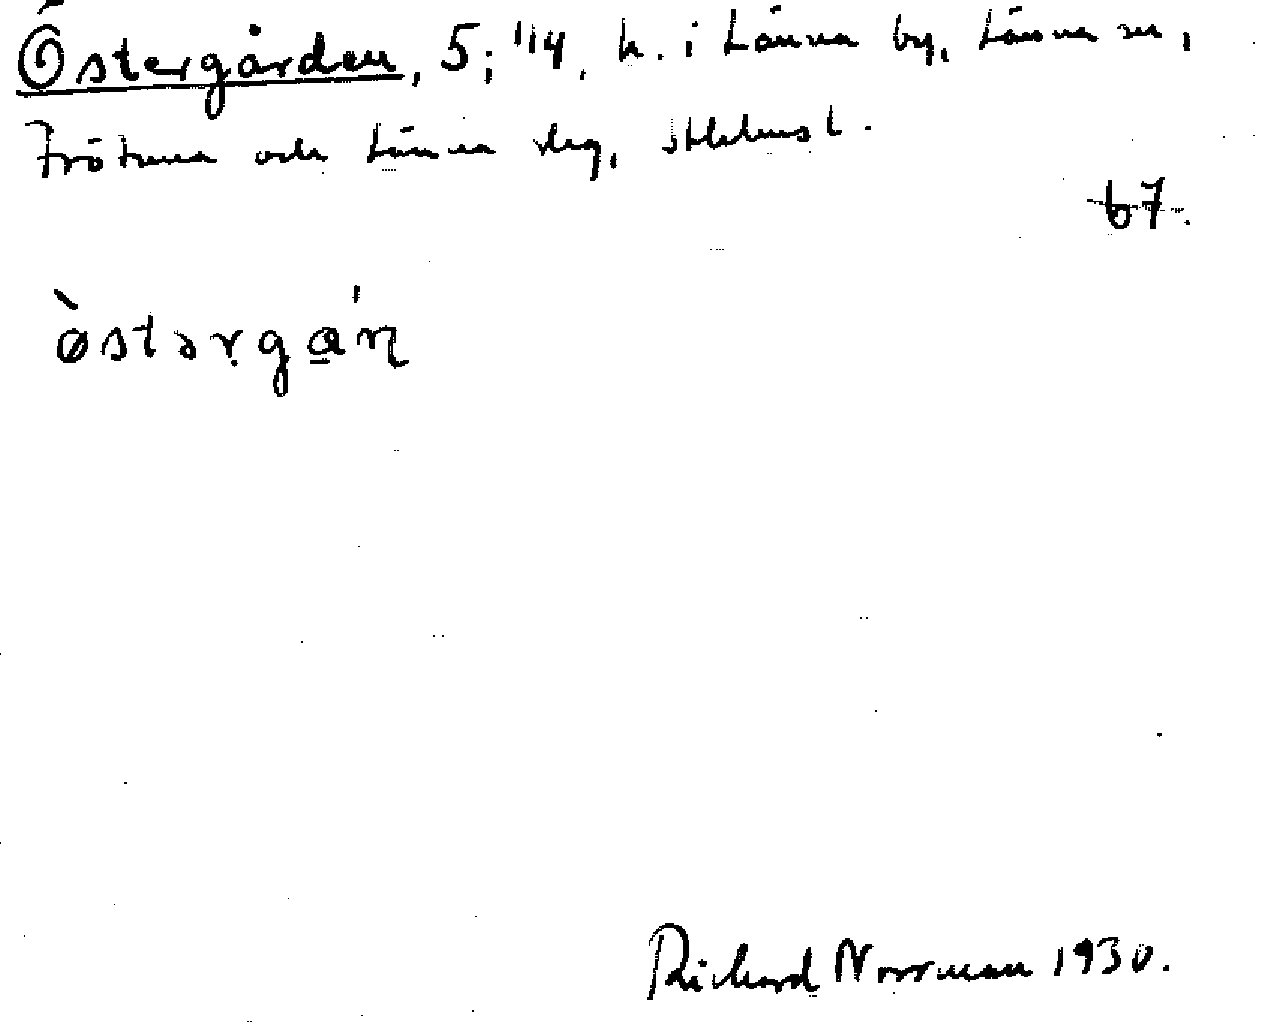 Östergården, 5; 1/4, h. i Länna by, Länna sn,
Frötuna och Länna slg, Sthlms l.
b7.
ö̀stərgá̱ɳ
Richard Norrman 1930.